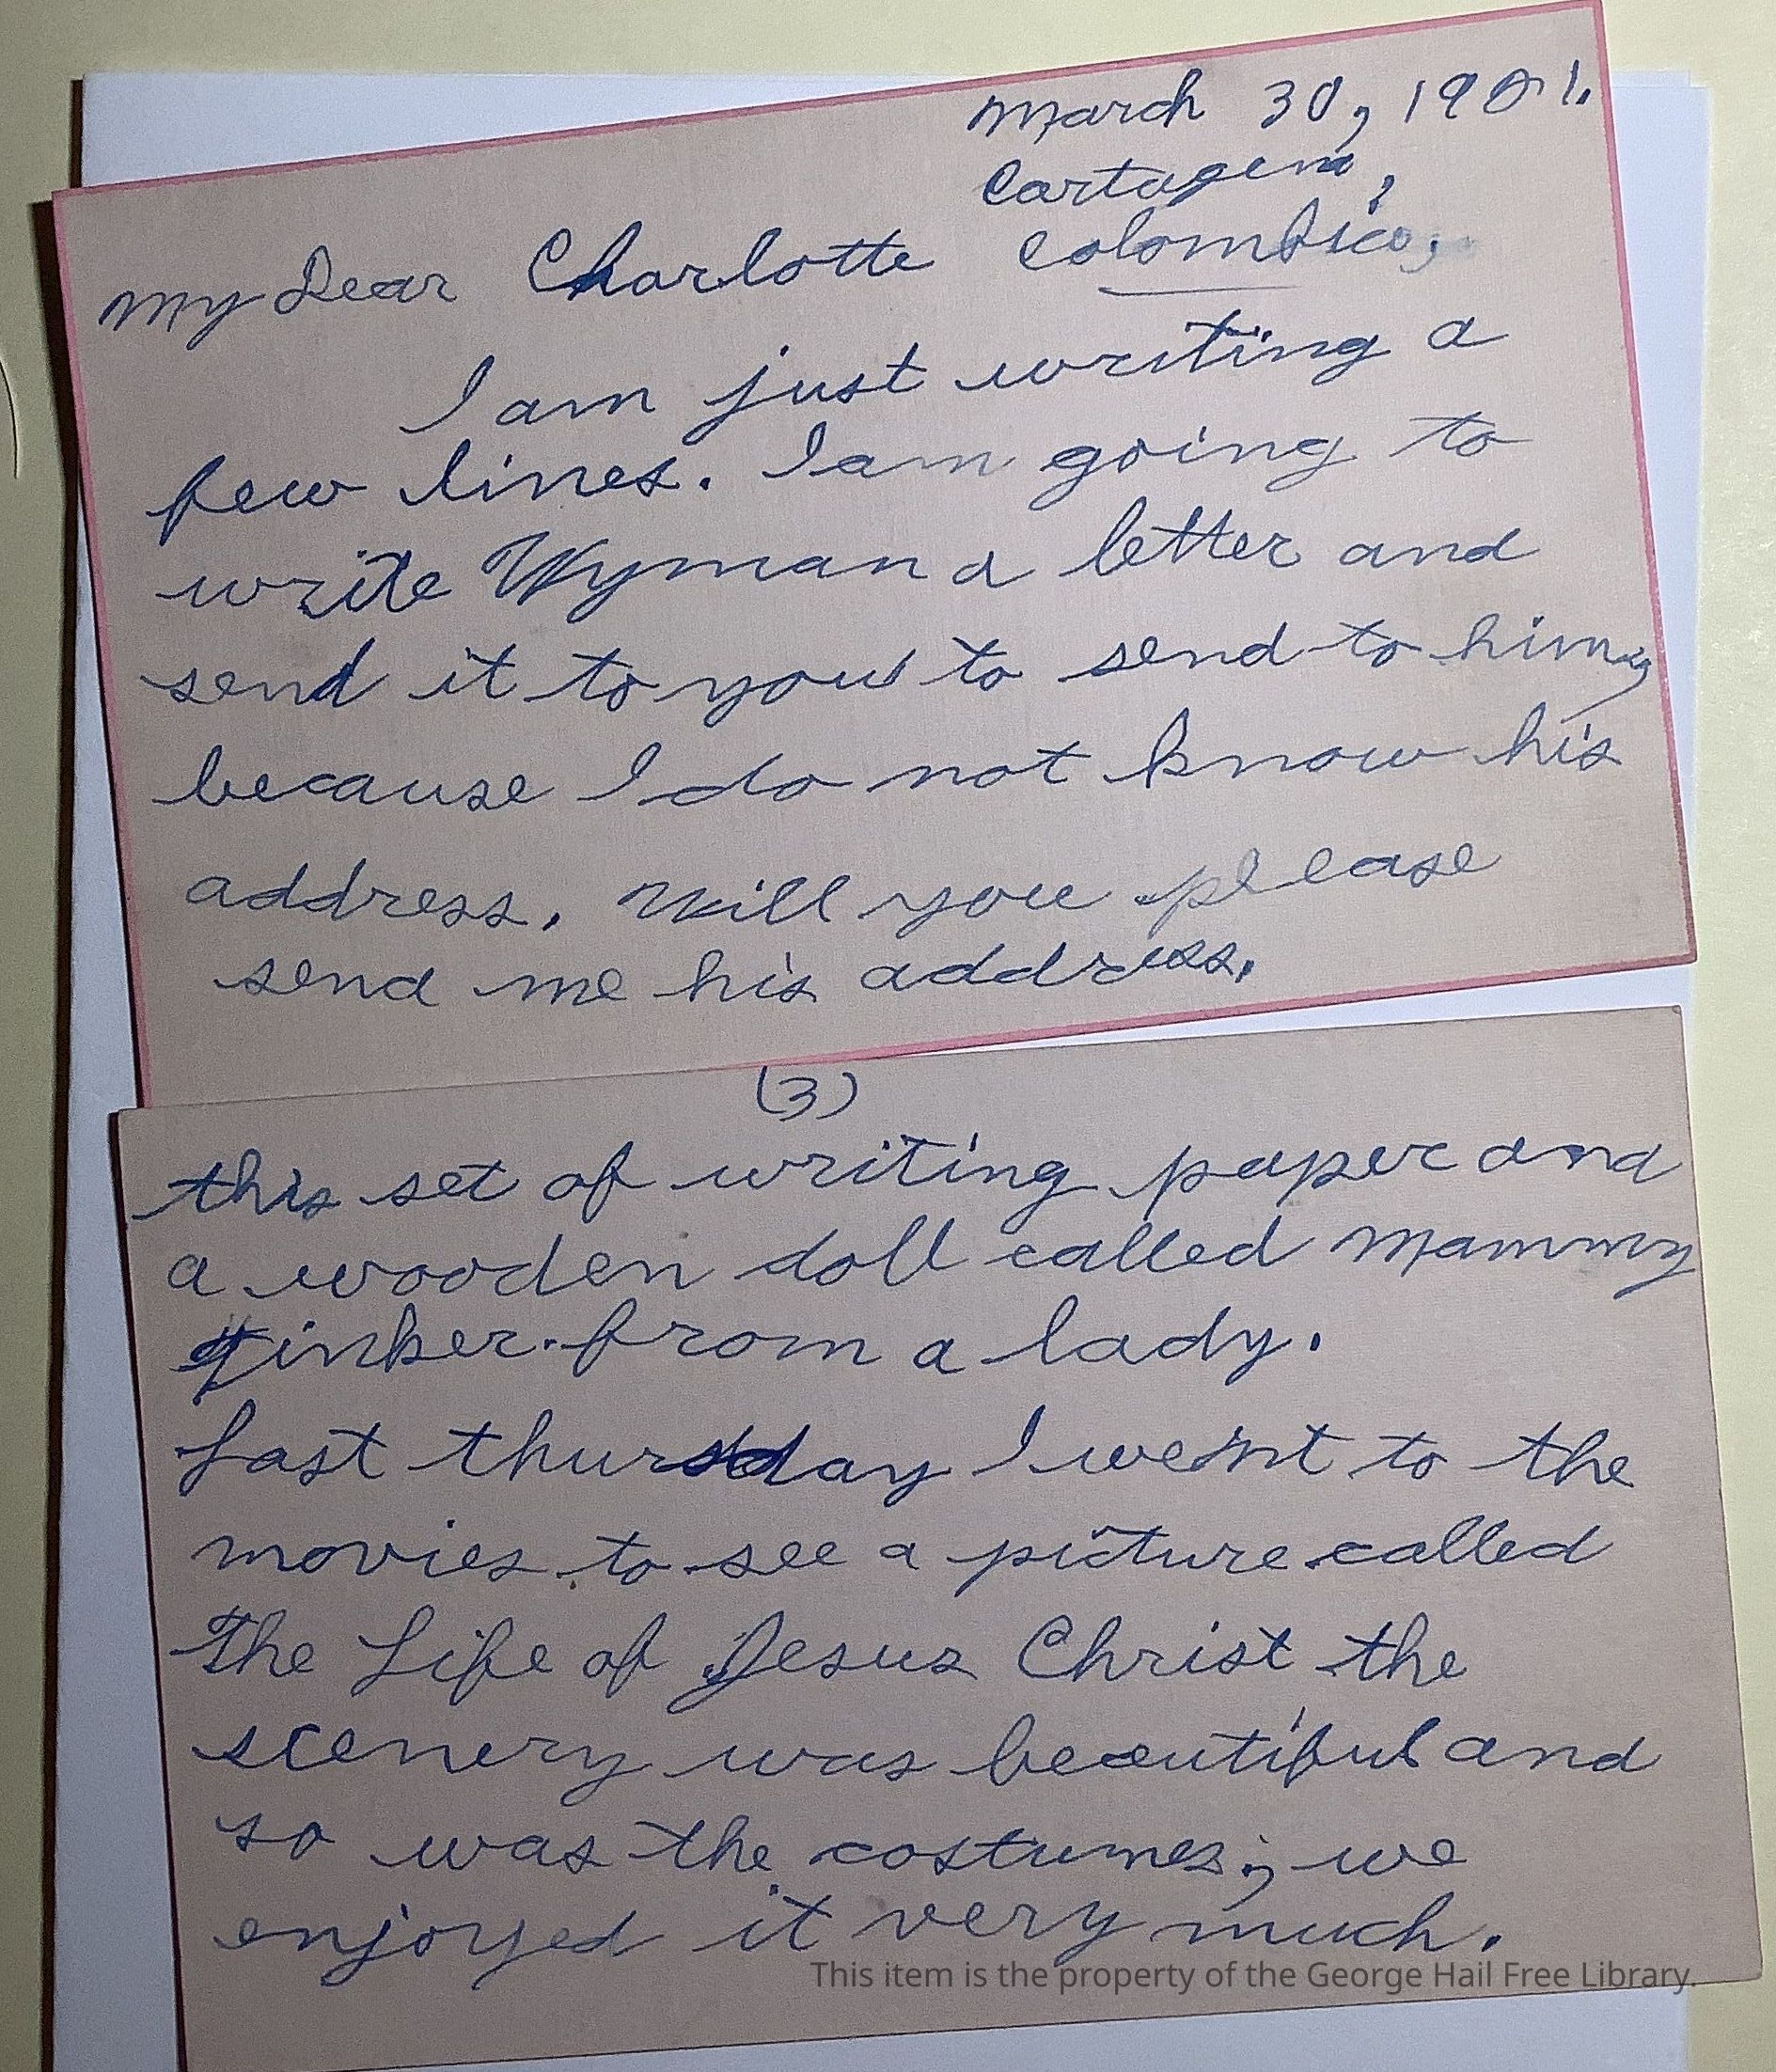 March 30, 1901.
Cartagena,
Colombia,
My Dear Charlotte
I am just writing a
few lines. I am going to
write Wyman a letter and
send it to you to send to him,
because I do not know his
address. Will you please
send me his address.
(3)
this set of writing paper and
a wooden doll called Mammy
Tinker from a lady.
Last thursday I went to the
movies to see a picture called
The Life of Jesus Christ the
scenery was beautiful and
so was the costumes; we
enjoyed it very much.
This item is the property of the George Hail Free Library.